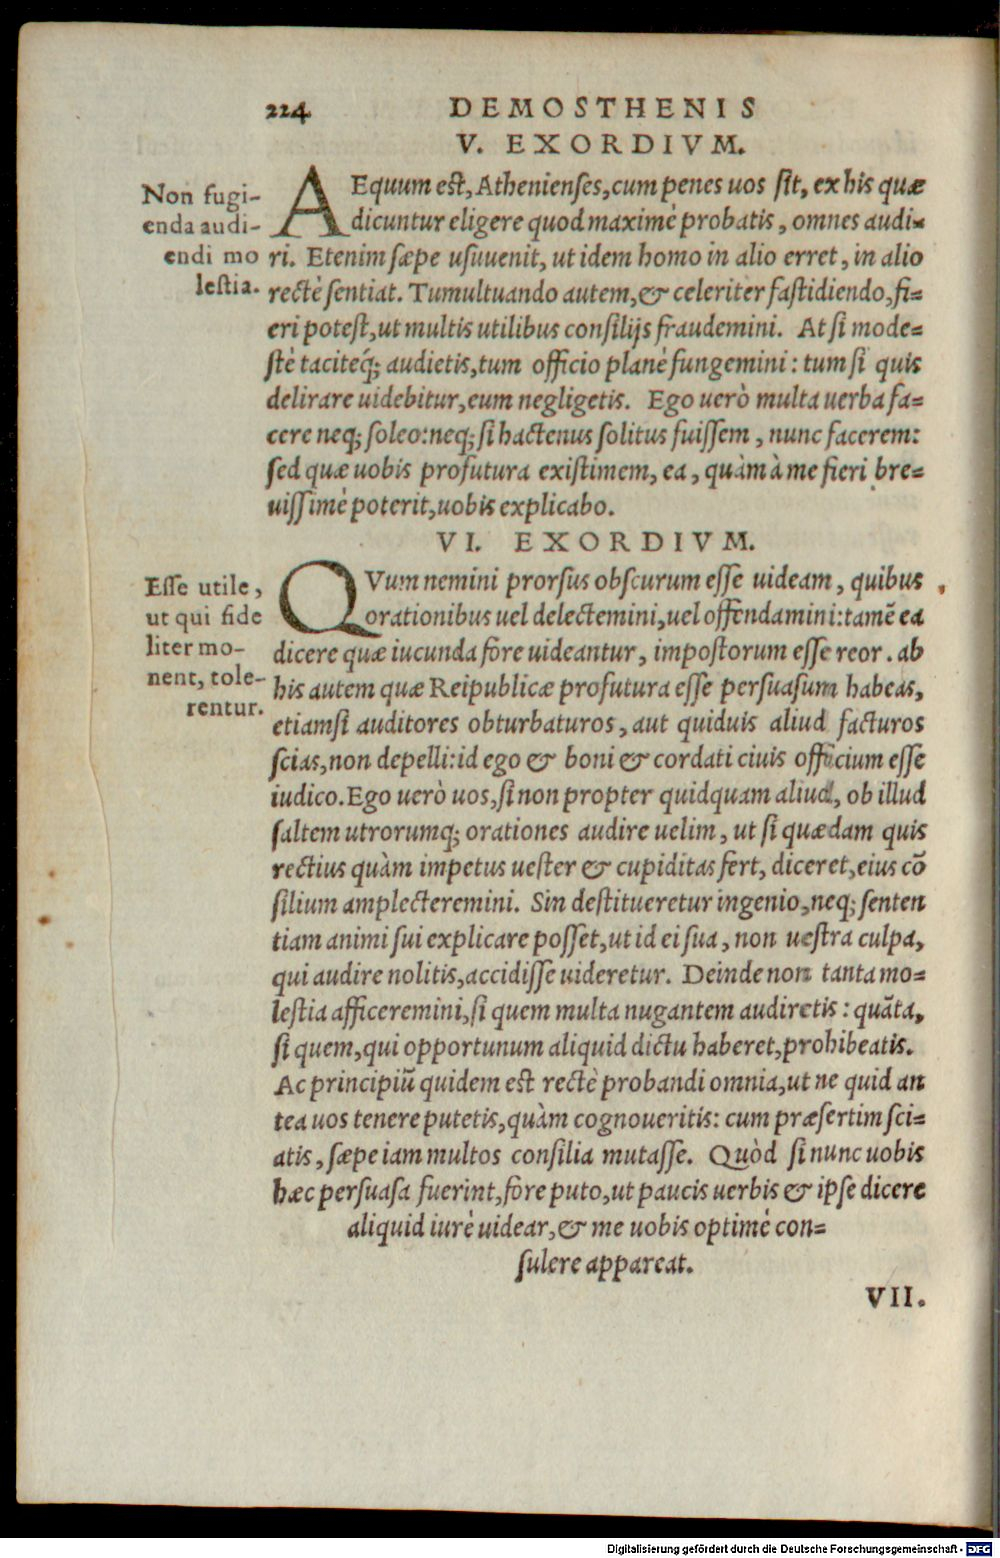 224 DEMOSTHENIS
V. EXORDIVM.
Non fugi-
enda audi-
endi mo
lestia.
AEquum est, Athenienses, cum penes uos sit, ex his quæ
dicuntur eligere quod maximè probatis, omnes audi=
ri. Etenim sæpe usuuenit, ut idem homo in alio erret, in alio
rectè sentiat. Tumultuando autem, & celeriter fastidiendo, fi=
eri potest, ut multis utilibus consilijs fraudemini. At si mode=
stè tacitéq; audietis, tum officio planè fungemini: tum si quis
delirare uidebitur, eum negligetis. Ego uerò multa uerba fa=
cere neq; soleo: neq; si hactenus solitus fuissem, nunc facerem:
sed quæ uobis profutura existimem, ea, quàm à me fieri bre=
uissimè poterit, uobis explicabo.
VI. EXORDIVM.
Esse utile,
ut qui fide
liter mo-
nent, tole-
rentur.
QVum nemini prorsus obscurum esse uideam, quibus
orationibus uel delectemini, uel offendamini: tamẽ ea
dicere quæ iucunda fore uideantur, impostorum esse reor. ab
his autem quæ Reipublicæ profutura esse persuasum habeas,
etiamsi auditores obturbaturos, aut quiduis aliud facturos
scias, non depelli: id ego & boni & cordati ciuis officium esse
iudico. Ego uerò uos, si non propter quidquam aliud, ob illud
saltem utrorumq; orationes audire uelim, ut si quædam quis
rectius quàm impetus uester & cupiditas fert, diceret, eius cõ
silium amplecteremini. Sin destitueretur ingenio, neq; senten
tiam animi sui explicare posset, ut id ei sua, non uestra culpa,
qui audire nolitis, accidisse uideretur. Deinde non tanta mo=
lestia afficeremini, si quem multa nugantem audiretis: quãta,
si quem, qui opportunum aliquid dictu haberet, prohibeatis.
Ac principiũ quidem est rectè probandi omnia, ut ne quid an
tea uos tenere putetis, quàm cognoueritis: cum præsertim sci=
atis, sæpe iam multos consilia mutasse. Quòd si nunc uobis
hæc persuasa fuerint, fore puto, ut paucis uerbis & ipse dicere
aliquid iurè uidear, & me uobis optimè con=
sulere appareat.
VII.
Digitalisierung gefördert durch die Deutsche Forschungsgemeinschaft - DFG